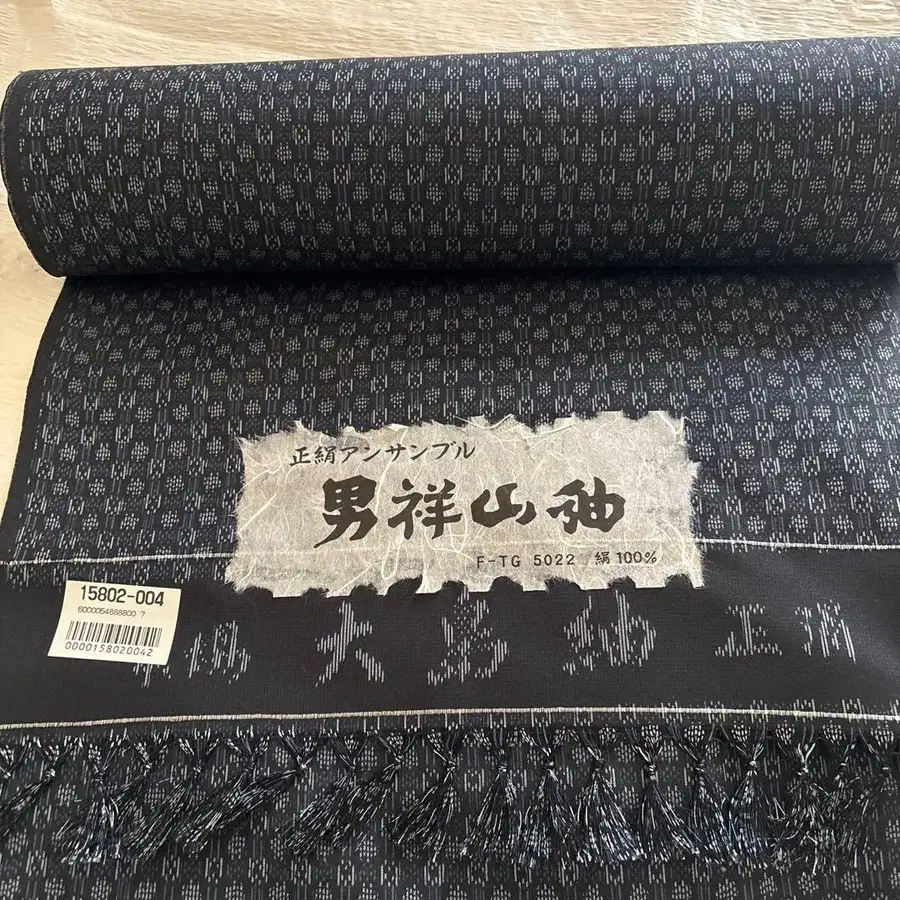 正絹アンサンブル
男祥山紬
F-TG 5022 絹100%
15802-004
6000054888800 7
0000158020042
絹 大 島 紬 正